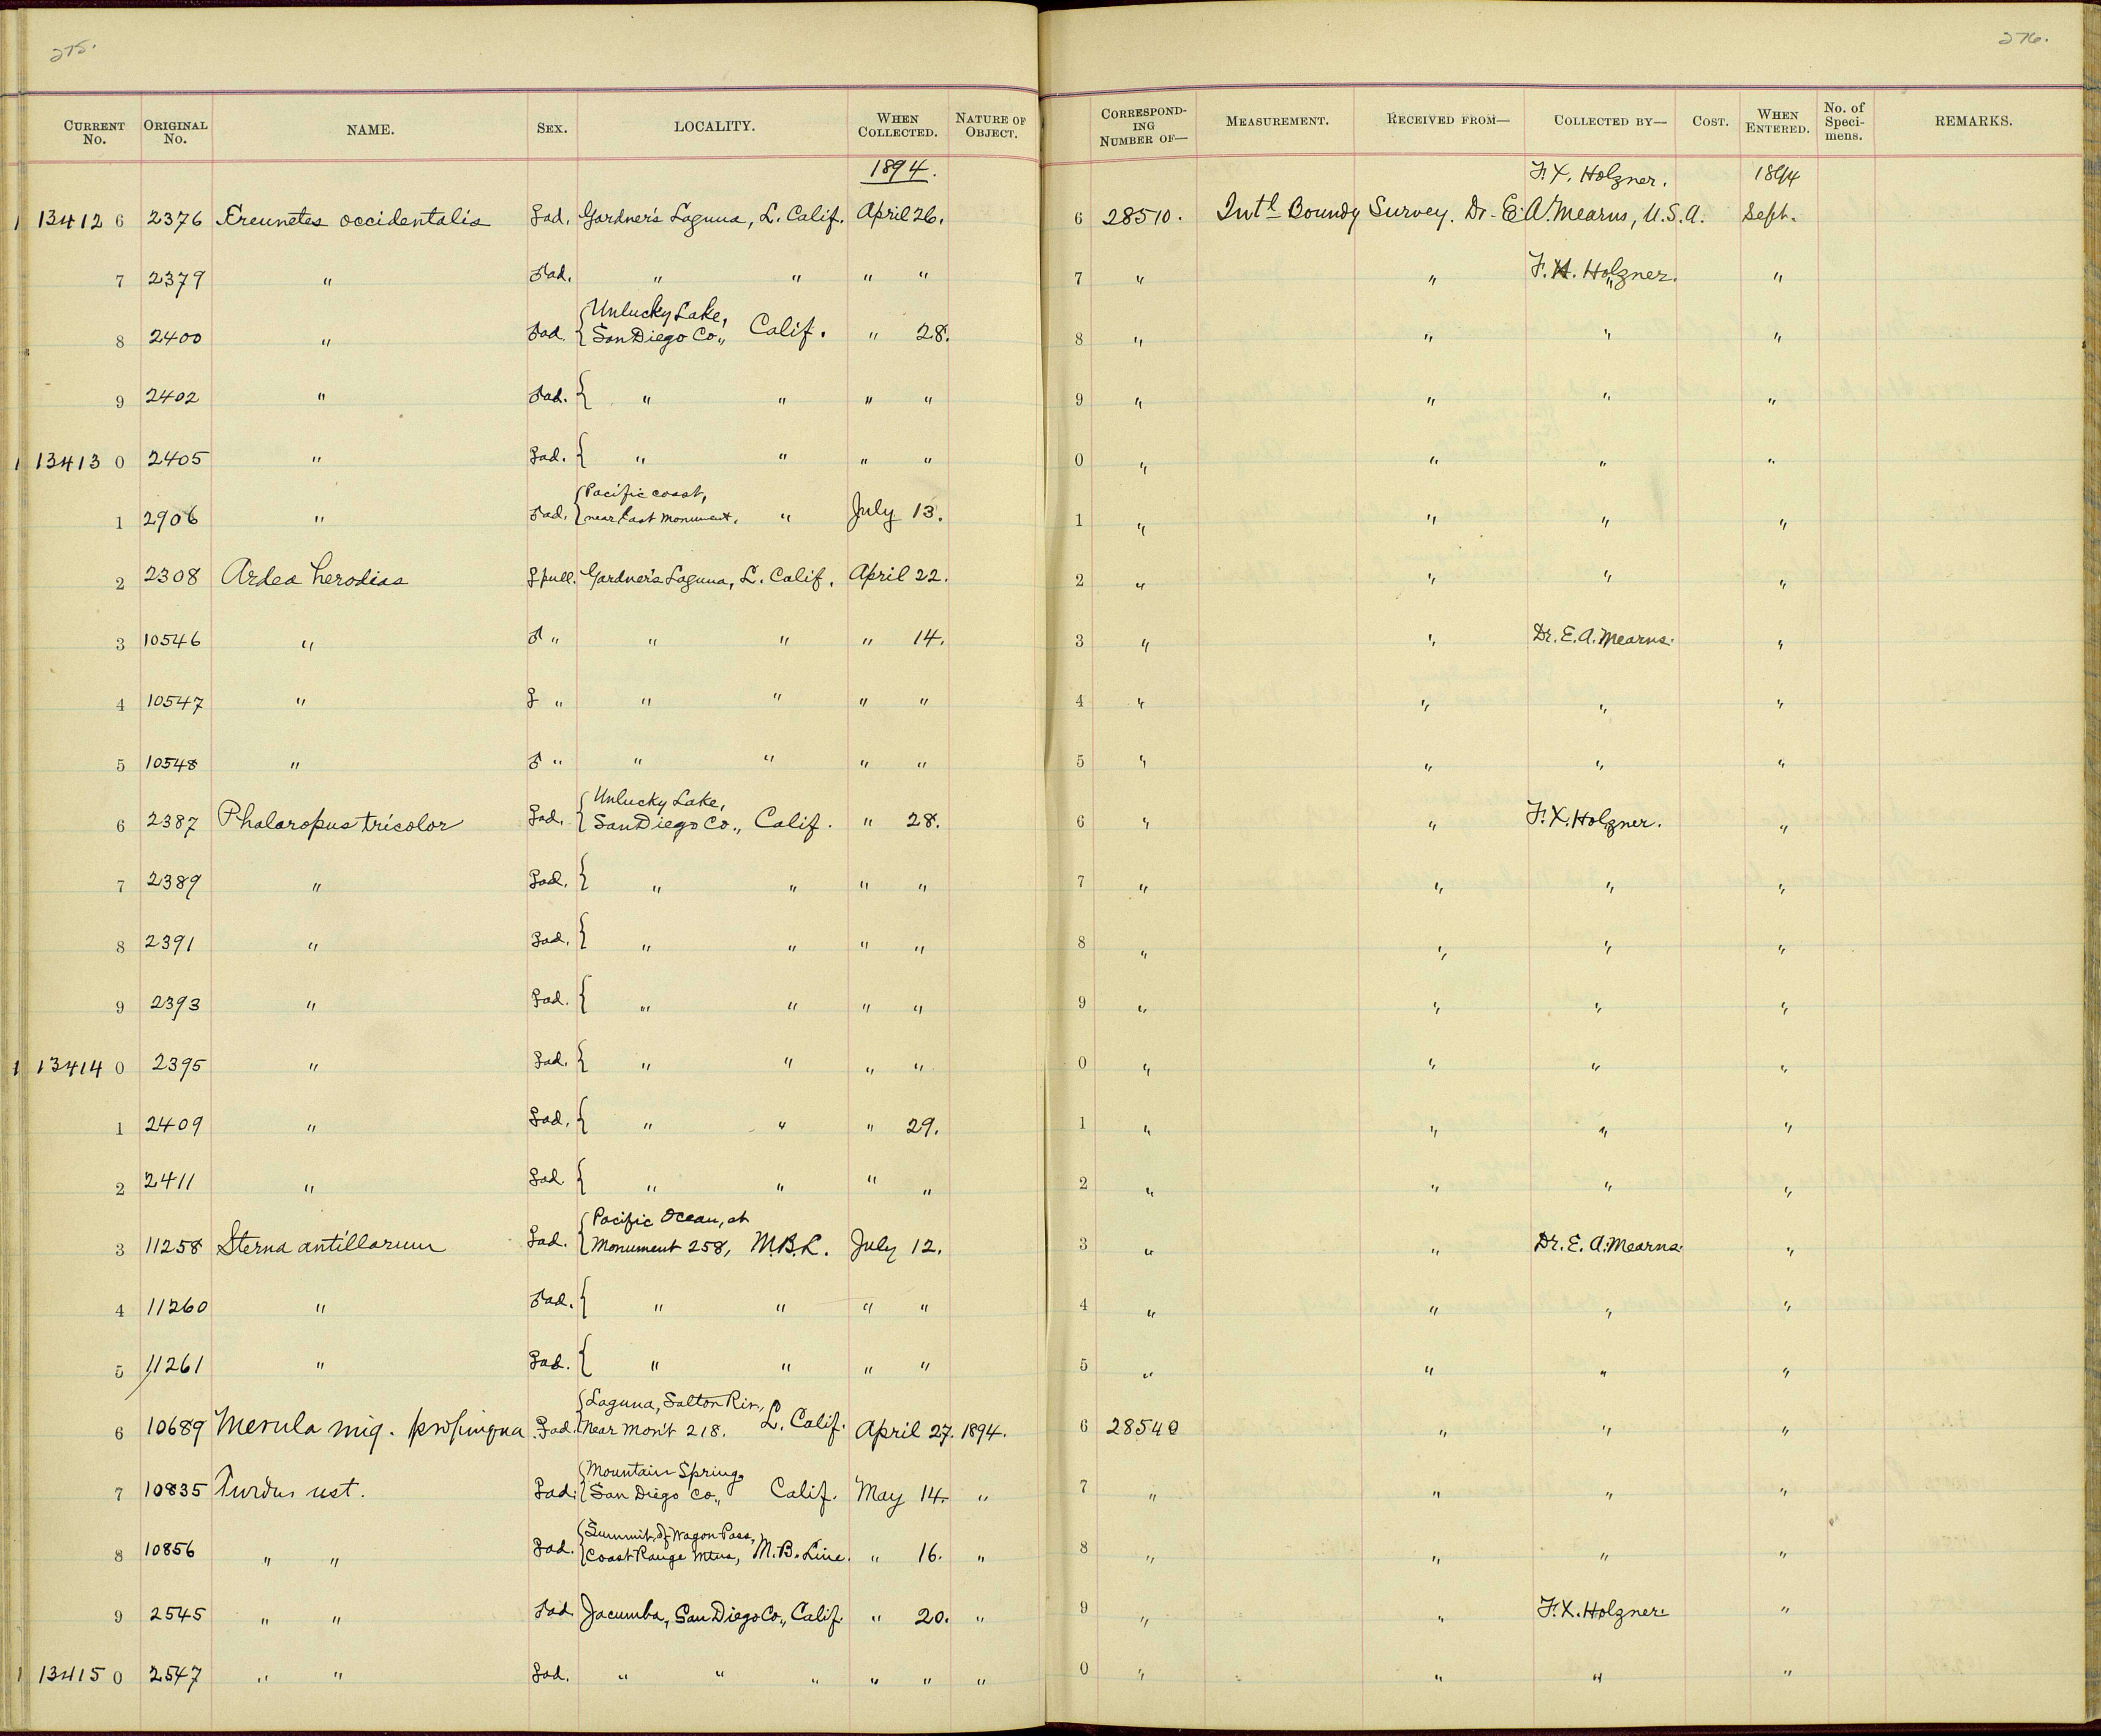 275.
276.
CURRENT No. ORIGINAL No. NAME. SEX. LOCALITY. WHEN COLLECTED. NATURE OF OBJECT. CORRESPONDING NUMBER OF— MEASUREMENT. RECEIVED FROM— COLLECTED BY— COST. WHEN ENTERED. No. of Specimens. REMARKS.
1894. F. X. Holzner. 1894
1 13412 6 2376 Ereunetes occidentalis ♀ad. Gardner's Laguna, L. Calif. April 26. 6 28510. Intl Boundy Survey. Dr. E. A. Mearns, U.S.A. Sept.
7 2379 " ♂ad. " " " " 7 " " F. X. Holzner. "
8 2400 " ♂ad. { Unlucky Lake, San Diego Co., Calif. " 28. 8 " " " "
9 2402 " ♂ad. { " " " " 9 " " " "
1 13413 0 2405 " ♀ad. { " " " " 0 " " " "
1 2906 " ♂ad. { Pacific coast, near Last Monument. " July 13. 1 " " " "
2 2308 Ardea herodias ♀ pull. Gardner's Laguna, L. Calif. April 22. 2 " " " "
3 10546 " ♂ " " " " 14. 3 " " Dr. E. A. Mearns. "
4 10547 " ♀ " " " " " 4 " " " "
5 10548 " ♂ " " " " " 5 " " " "
6 2387 Phalaropus tricolor ♀ad. { Unlucky Lake, San Diego Co., Calif. " 28. 6 " " F. X. Holzner. "
7 2389 " ♀ad. { " " " " 7 " " " "
8 2391 " ♀ad. { " " " " 8 " " " "
9 2393 " ♀ad. { " " " " 9 " " " "
1 13414 0 2395 " ♀ad. { " " " " 0 " " " "
1 2409 " ♀ad. { " " " 29. 1 " " " "
2 2411 " ♀ad. { " " " " 2 " " " "
3 11258 Sterna antillarum ♀ad. { Pacific Ocean, at Monument 258, M.B.L. July 12. 3 " " Dr. E. A. Mearns. "
4 11260 " ♂ad. { " " " " 4 " " " "
5 11261 " ♀ad. { " " " " 5 " " " "
6 10689 Merula mig. propinqua ♀ad. { Laguna, Salton Riv., Near Mon't 218. L. Calif. April 27. 1894. 6 28540 " " "
7 10835 Turdus ust. ♀ad. { Mountain Spring, San Diego Co., Calif. May 14. " 7 " " " "
8 10856 " " ♀ad. { Summit of Wagon Pass, Coast Range Mtns, M. B. Line. " 16. " 8 " " " "
9 2545 " " ♂ad. Jacumba, San Diego Co., Calif. " 20. " 9 " " F. X. Holzner. "
1 13415 0 2547 " " ♀ad. " " " " " " 0 " " " "